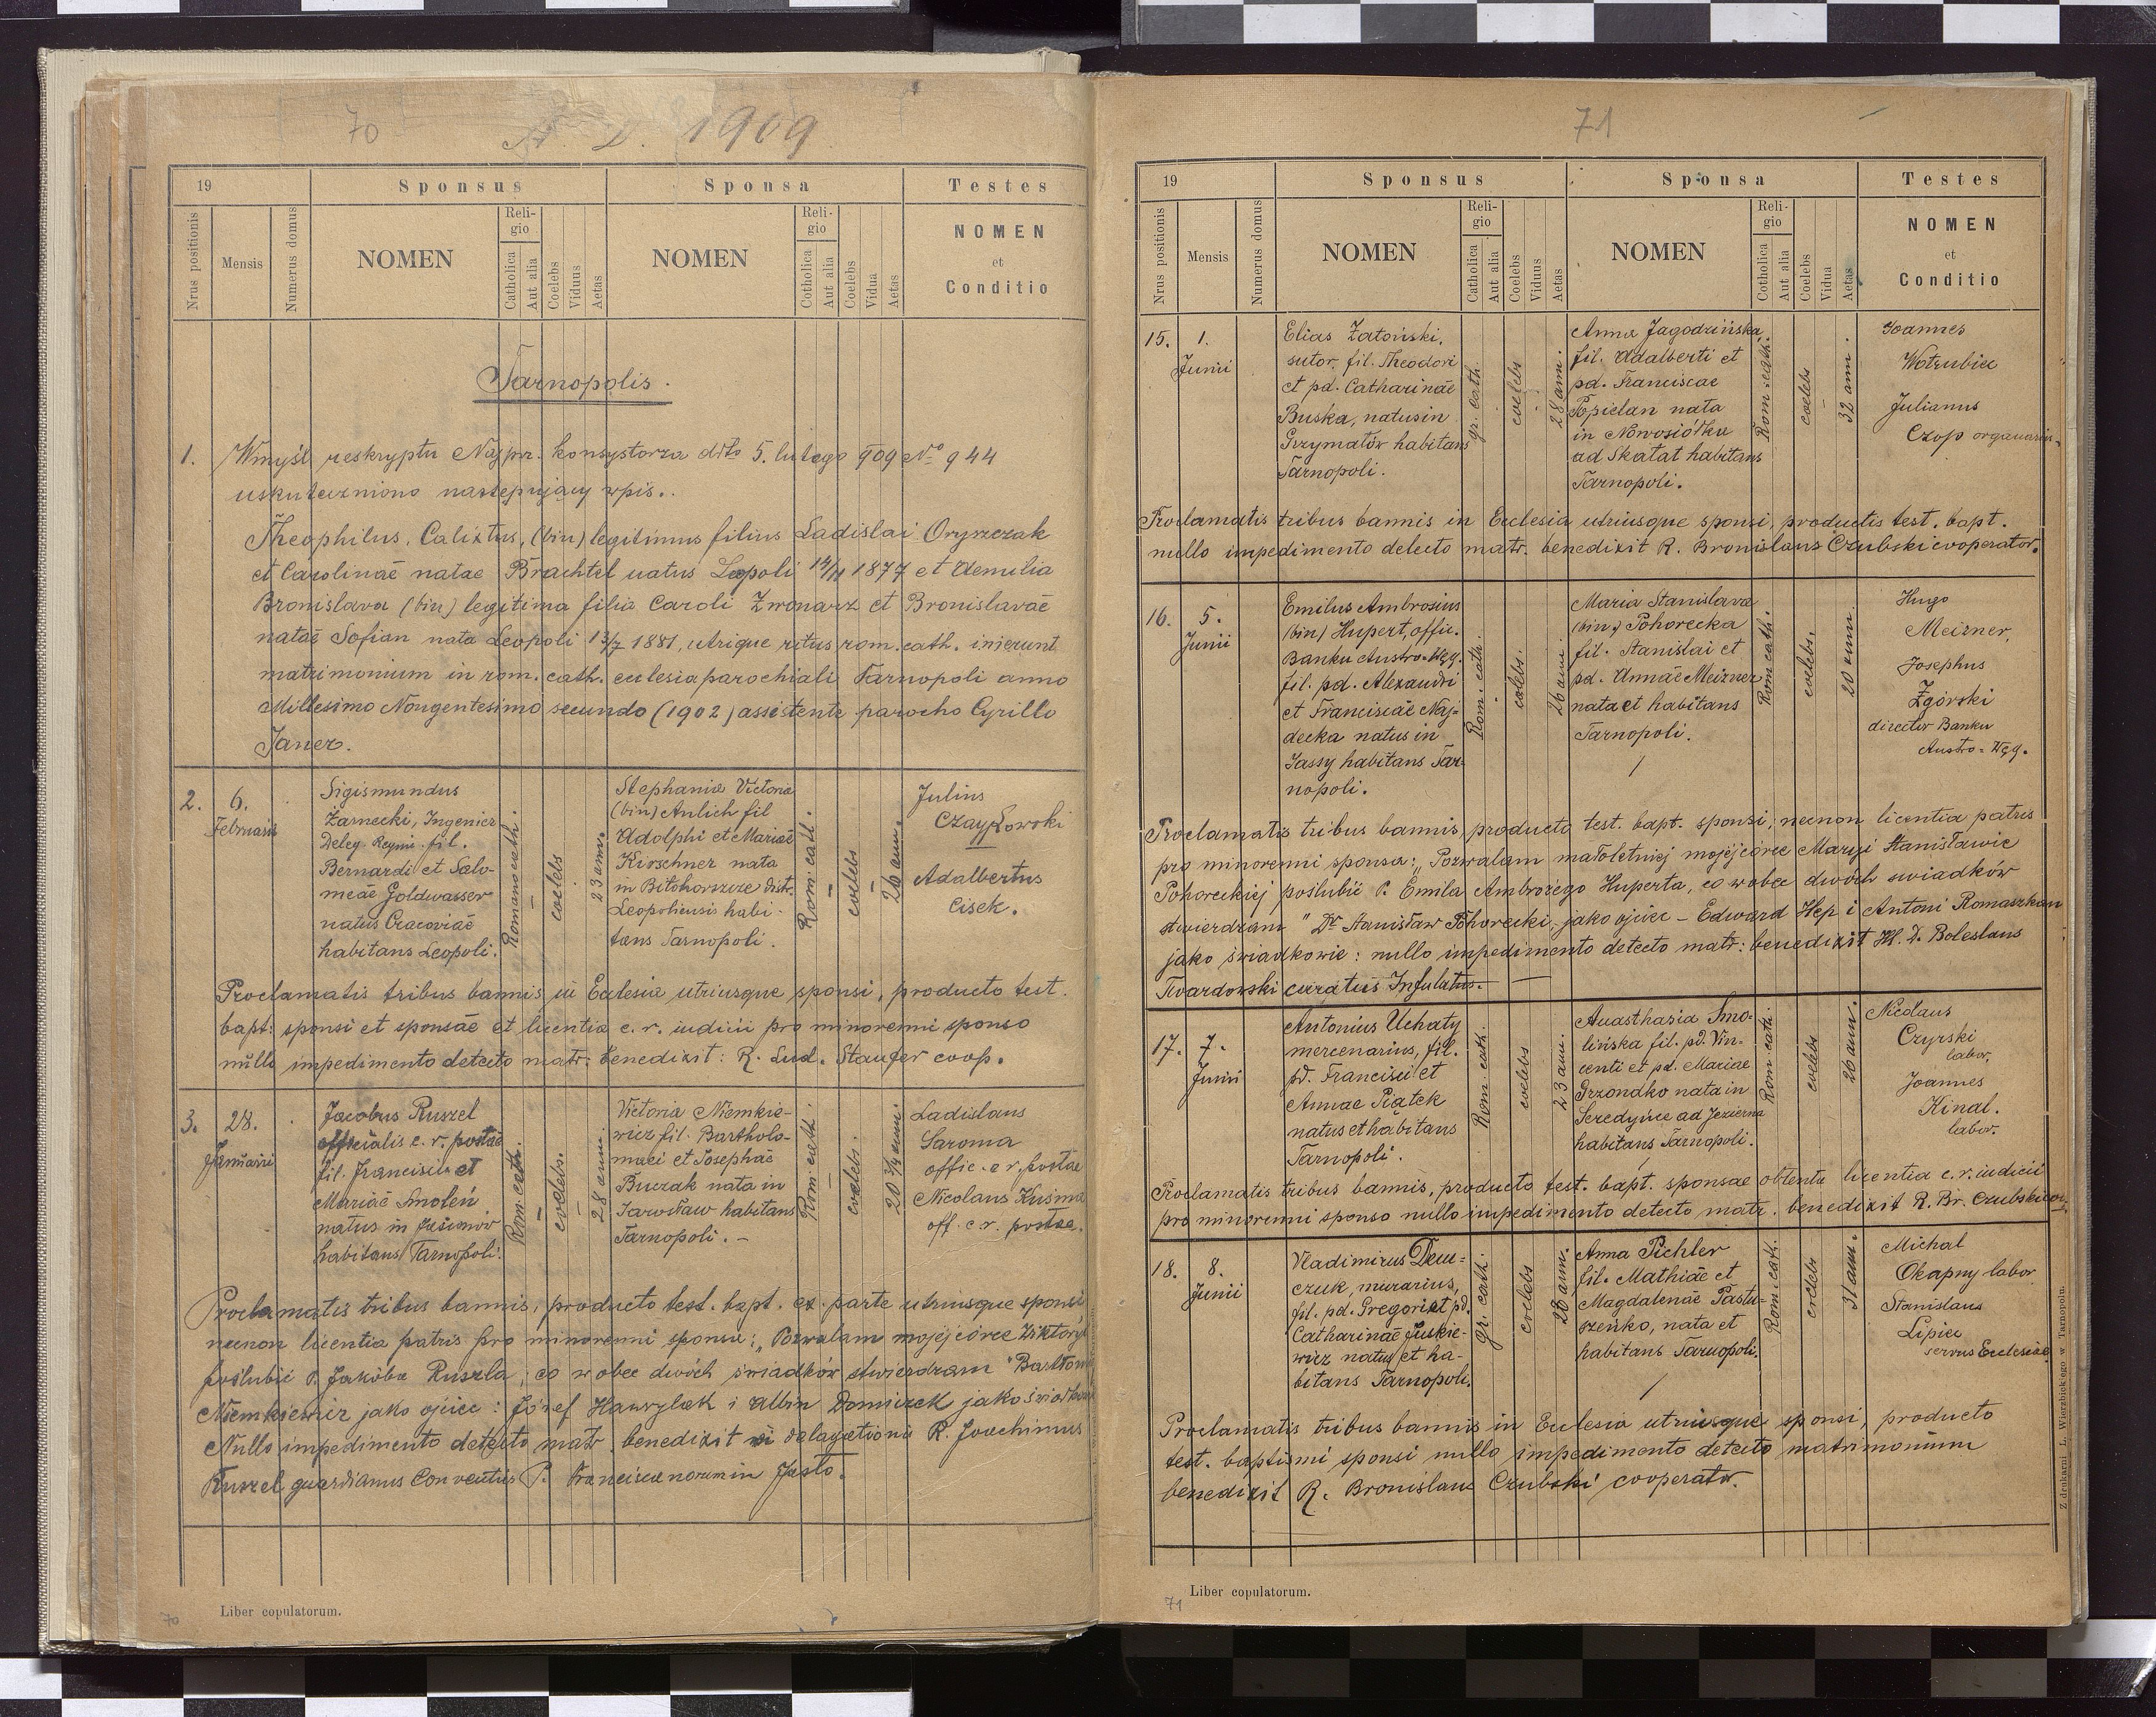 70
A. D. 1909
19
Sponsus
Sponsa
Testes
Nrus positionis
Mensis
Numerus domus
NOMEN
Religio
Catholica
Aut alia
Coelebs
Viduus
Aetas
NOMEN
Religio
Cotholica
Aut alia
Coelebs
Vidua
Aetas
NOMEN
et
Conditio
Tarnopolis.
1. Wmyśl reskryptu Najprz. konsystorza dtto 5. lutego 909 No 944
uskuteczniono następujący wpis.
Theophilus, Calixtus, (bin) legitimus filius Ladislai Oryszczak
et Carolinae natae Brachtel natus Leopoli 1877 et Aemilia
Bronislava (bin) legitima filia Caroli Zwonarz et Bronislavae
natae Sofian nata Leopoli 13/7 1881, utrique ritus rom. cath. inierunt
matrimonium in rom. cath. ecclesia parochiali Tarnopoli anno
Millesimo Nongentesimo secundo (1902) assistente parocho Cyrillo
Janer.
2.
6.
Februarii
Sigismundus
Żarnecki, Ingenier
Deleg. Regni. fil.
Bernardi et Salo-
meae Goldwasser
natus Cracoviae
habitans Leopoli.
Romano cath.
coelebs
23 ann.
Stephania Victoria
(bin) Anlich fil
Adolphi et Mariae
Kirschner nata
in Bitohorszcze distr.
Leopoliensis habi-
tans Tarnopoli.
Rom. cath.
coelebs
26 ann.
Julius
Czaykowski
Adalbertus
Cisek.
Proclamatis tribus bannis in Ecclesia utriusque sponsi, producto test.
bapt: sponsi et sponsae et licentia c. r. iudicii pro minorenni sponso
nullo impedimento detecto matr. benedixit: R. Lud. Staufer coop.
3.
28.
Januarii
Jacobus Ruszel
officialis c. r. postae
fil. Francisci et
Mariae Smoleń
natus in
habitans Tarnopoli.
Rom. cath.
coelebs.
28 ann.
Victoria Niemkie-
wicz fil. Bartholo-
maei et Josephae
Buczak nata in
Jarosław habitans
Tarnopoli. -
Rom. cath.
coelebs.
20 3/4 ann.
Ladislaus
Saroma
offic. c r. postae
Nicolaus Kuśma
off. c. r. postae.
Proclamatis tribus bannis, producto test. bapt. ex parte utriusque sponsi
necnon licentia patris pro minorenni sponsa: „Pozwalam mojej córce Wiktoryi
poślubić p. Jakóba Ruszla, co wobec dwóch świadków stwierdzam"
Niemkiewicz jako ojciec: Józef Hawrylak i Albin Domiczek jako
Nullo impedimento detecto matr. benedixit vi delagationis R. Joachimus
Ruszel guardianus Conventus P. Franciscanorum in Jasło.
Liber copulatorum.
70
71
19
Sponsus
Sponsa
Testes
Nrus positionis
Mensis
Numerus domus
NOMEN
Religio
Catholica
Aut alia
Coelebs
Viduus
Aetas
NOMEN
Religio
Cotholica
Aut alia
Coelebs
Vidua
Aetas
NOMEN
et
Conditio
15.
1.
Junii
Elias Zatoński,
sutor, fil. Theodori
et pd. Catharinae
Buska, natus in
Grzymałów habitans
Tarnopoli.
gr. cath.
coelebs
28 ann.
Anna Jagodzińska,
fil. Adalberti et
pd. Franciscae
Popielan nata
in Nowosiółka
ad Skałat habitans
Tarnopoli.
Rom. cath.
coelebs
32 ann.
Joannes
Wotrubiec
Julianus
Czop organarius
Proclamatis tribus bannis in Ecclesia utriusque sponsi, productis test. bapt.
nullo impedimento detecto matr. benedixit R. Bronislaus Czubski cooperator.
16.
5.
Junii
Emilus Ambrosius
(bin) Hupert, offic.
Banku Austro-Węg.
fil. pd. Alexandri
et Franciscae Naj-
decka natus in
Jassy habitans Tar-
nopoli.
Rom. cath.
coelebs.
26 ann.
Maria Stanislava
(bin) Pohorecka
fil. Stanislai et
pd. Annae Meizner
nata et habitans
Tarnopoli.
Rom. cath.
coelebs.
20 ann.
Hugo
Meizner,
Josephus
Zgórski
director Banku
Austro-Węg.
Proclamatis tribus bannis, producto test. bapt. sponsi, necnon licentia patris
pro minorenni sponsa: „Pozwalam małoletniej mojej córce Maryi Stanisławie
Pohoreckiej poślubić P. Emila Ambrożego Huperta, co wobec dwóch swiadków
stwierdzam" Dr Stanisław Pohorecki, jako ojciec - Edward Hep i Antoni Romaszkan
jako świadkowie: nullo impedimento detecto matr: benedixit Ill. D. Boleslaus
Twardowski curatus Infulatus.
17.
7.
Junii
Antonius Uchaty
mercenarius, fil.
pd. Francisci et
Annae Piątek
natus et habitans
Tarnopoli.
Rom. cath.
coelebs
23 ann.
Anasthasia Smo-
lińska fil. pd. Vin-
centi et pd. Mariae
Grzondko nata in
Seredyńce ad Jezierna
habitans Tarnopoli.
Rom. cath.
coelebs
26 ann.
Nicolaus
Czyrski
labor,
Joannes
Kinal.
labor.
Proclamatis tribus bannis, producto test. bapt. sponsae obtenta licentia c. r. iudicii
pro minorenni sponso nullo impedimento detecto matr. benedixit R. Br. Czubski
18.
8.
Junii
Vladimirus Dem-
czuk, murarius,
fil. pd. Gregori et pd.
Catharinae Juskie-
wicz natus et ha-
bitans Tarnopoli.
gr. cath.
coelebs
28 ann.
Anna Pichler
fil. Mathiae et
Magdalenae Pastu-
szeńko, nata et
habitans Tarnopoli.
Rom. cath.
coelebs
31 ann.
Michal
Okapny labor
Stanislaus
Lipiec
servus Ecclesiae
Proclamatis tribus bannis in Ecclesia utriusque sponsi, producto
test. baptismi sponsi nullo impedimento detecto matrimonium
benedixit R. Bronislaus Czubski cooperator.
Z drukarni L. Wierzbickiego w Tarnopolu.
Liber copulatorum.
71